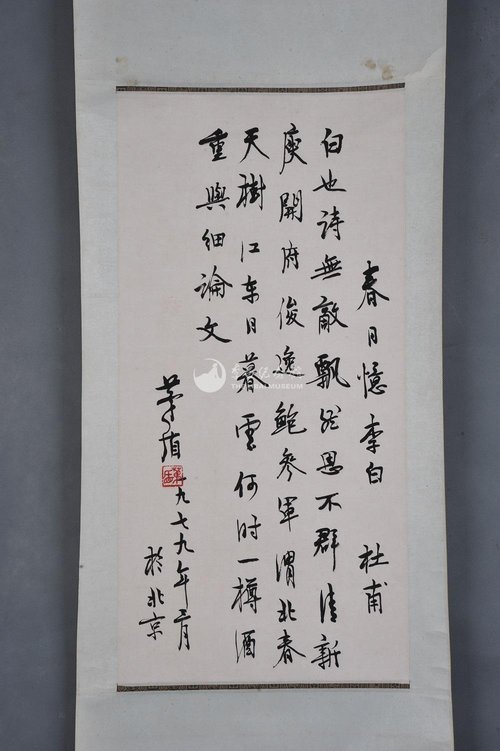 春日憶李白 杜甫
白也詩無敵飄然思不群清新
庾開府俊逸鮑参軍渭北春
天樹江东日暮雲何时一樽酒
重與細論文
茅盾
一九七九年月
於北京
李白纪念馆
THE LIBAI MUSEUM